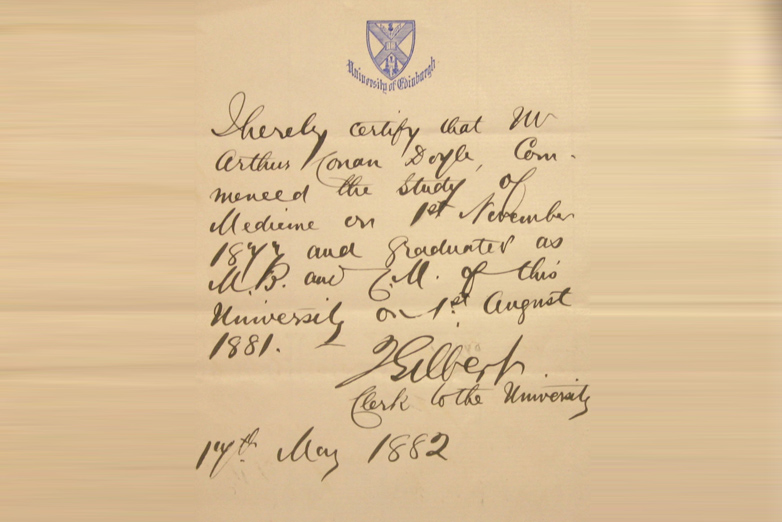 University of Edinburgh
I hereby certify that Mr
Arthur Conan Doyle, Com-
menced the Study of
Medicine on 1st November
1877 and graduated as
M.B. and C.M. of this
University on 1st August
1881. –
J Gilbert.
Clerk to the University
17th May 1882